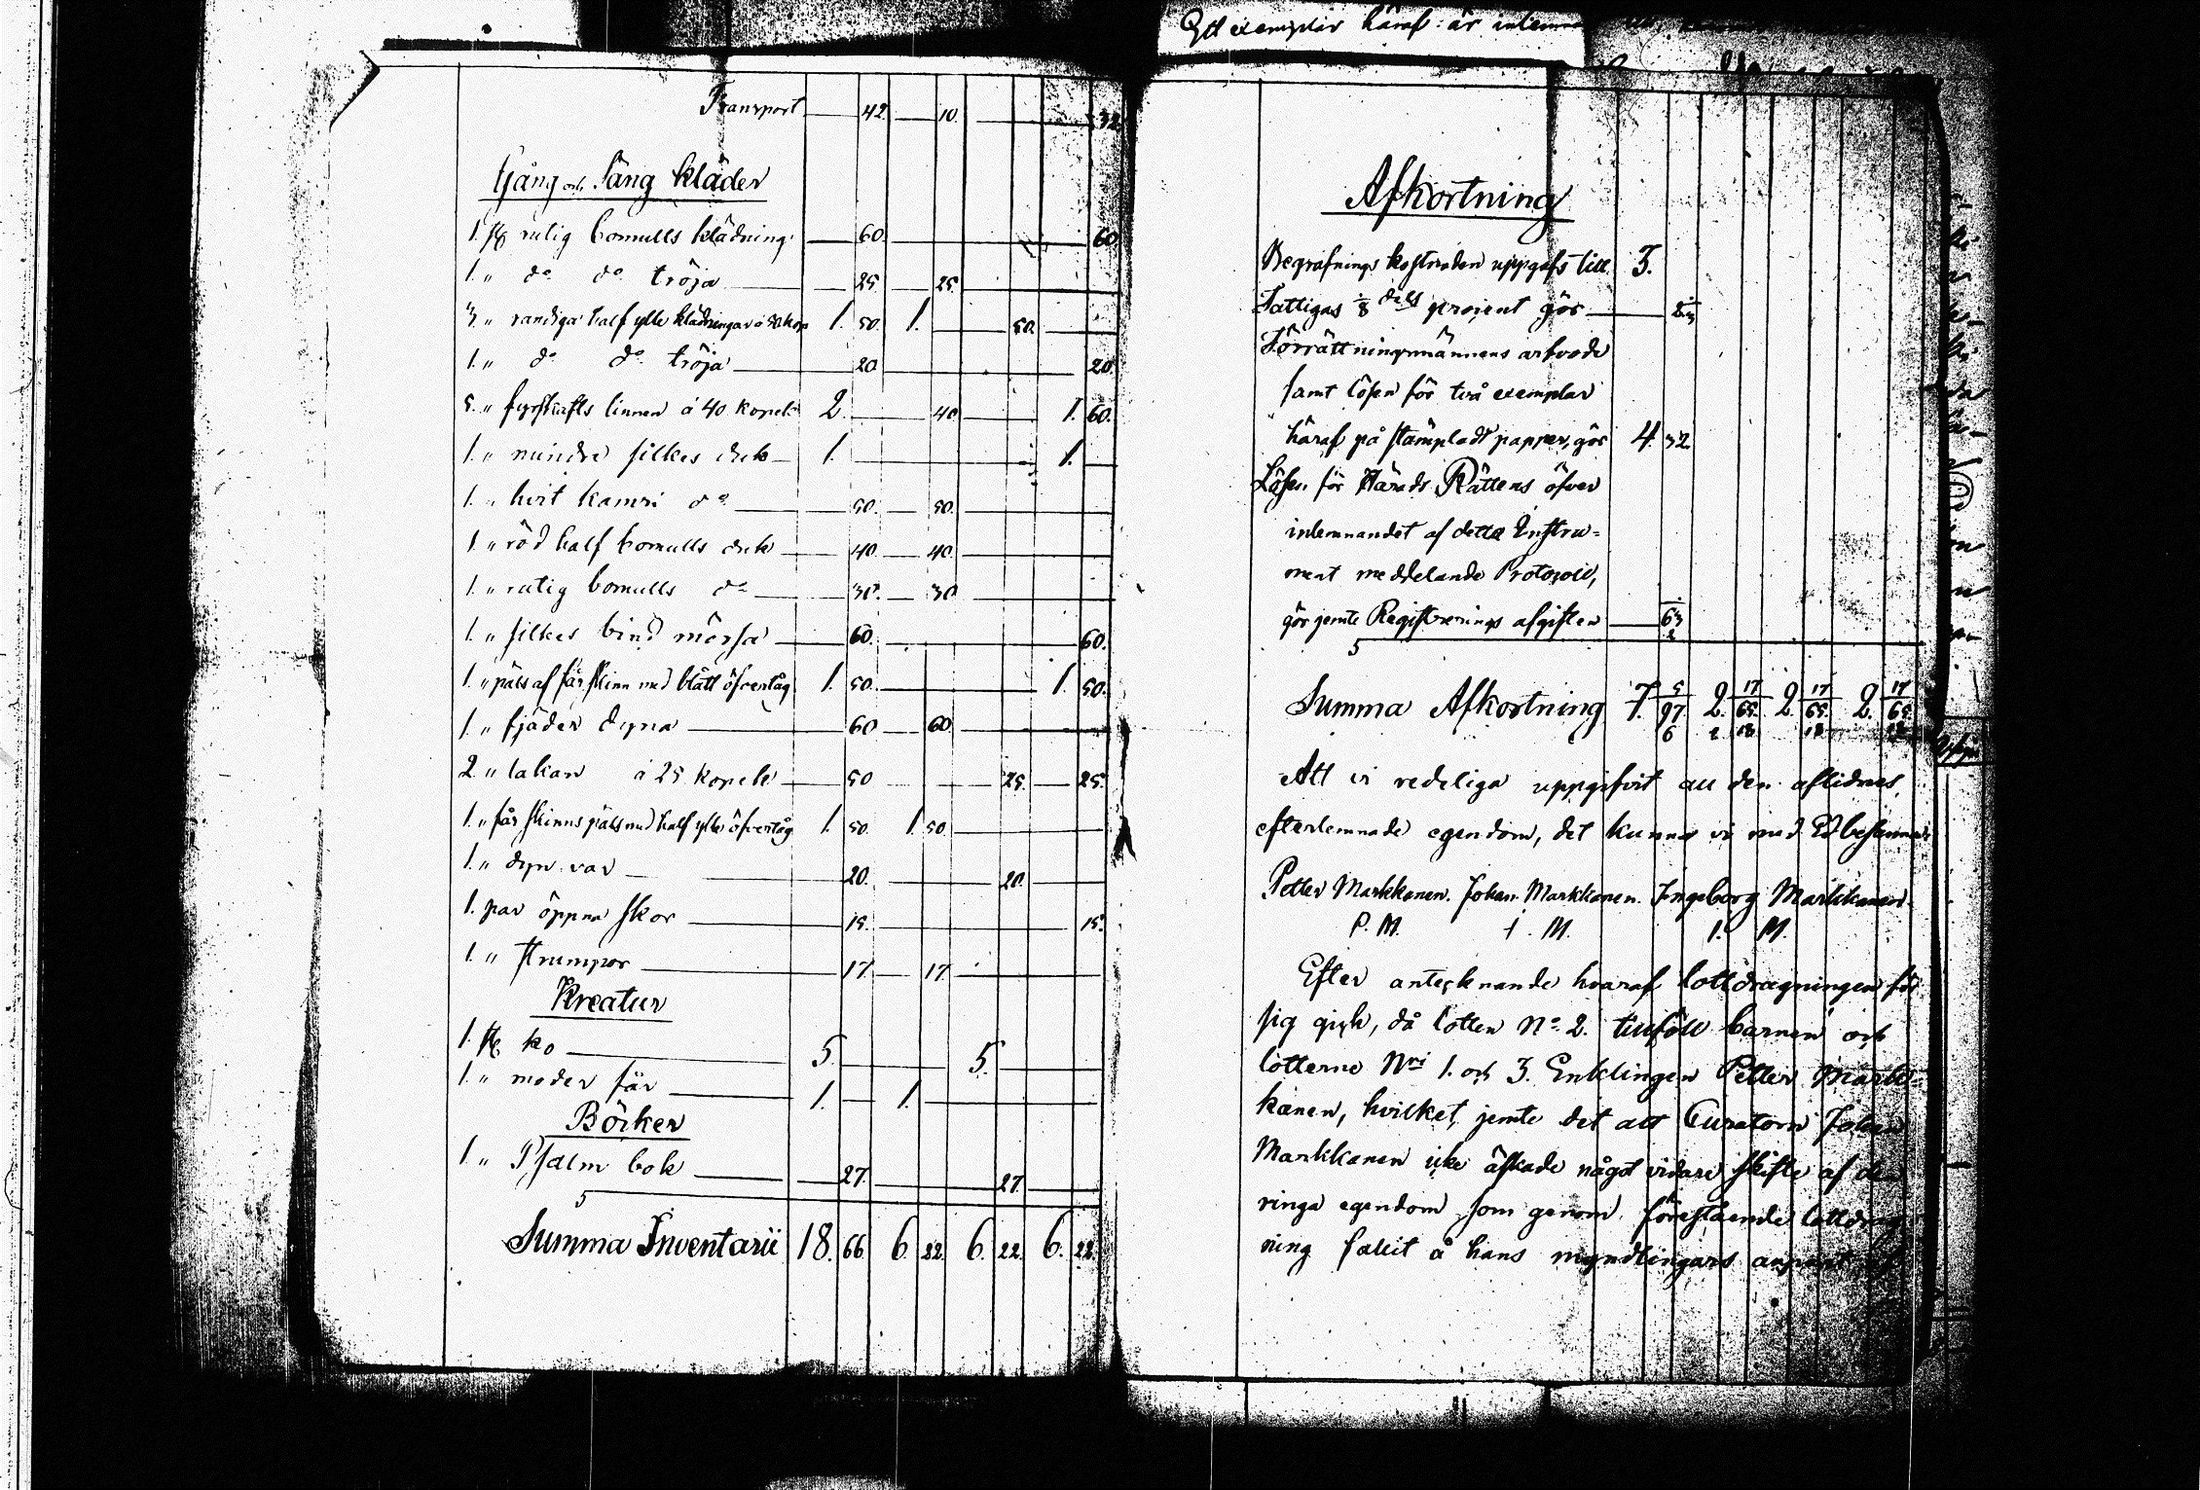 Ett exemplar häraf är inlemn
Transport — 42. — 10. — 32
Gång och Säng kläder
1. st rutig bomulls klädning — 60. — 60.
1. " do do tröja — 25. — 25.
3. " randiga half ylle klädningar á 50 kop 1. 50. 1. — 50. —
1. " do do tröja — 20 — 20.
5. " fyrskafts linnen á 40 kopek 2. — 40. — 1. 60.
1. " mindre silkes duk — 1. — 1. —
1. " hvit kamri do — 50. — 50.
1. " röd half bomulls duk — 40. — 40.
1. " rutig bomulls do — 30. — 30
1. " silkes bind mössa — 60. — 60.
1. " päls af får skinn med blått öfvertåg 1. 50. — 1. 50.
1. " fjäder dyna — 60 — 60.
2. " lakan á 25 kopek — 50 — 25. — 25.
1. " får skinns päls med half ylle öfvertåg 1. 50. 1. 50.
1. " dyn var — 20. — 20.
1. par öppna skor — 15. — 15.
1. " strumpor — 17. — 17.
Kreatur
1. st ko — 5. — 5. —
1. " moder får — 1. — 1. —
Böcker
1. " Psalm bok — 27. — 27.
Summa Inventarii 18. 66. 6. 22. 6. 22. 6. 22.
Afkortning
Begrafnings kostnaden uppgafs till 3.
Fattigas 1/8 dels procent gör —
Förrättningsmännens arfvode
samt lösen för två exemplar
häraf på stämpladt papper, gör 4. 32.
Lösen för Härads Rättens öfver
inlemnandet af detta Instru=
ment meddelande Protocoll,
gör jemte Registrerings afgiften — 63
Summa Afkortning 7. 97 5/6 2. 65 17/18 2. 65 17/18 2. 65 17/18
Att vi redeliga uppgifvit all den aflidnes
efterlemnade egendom, det kunna vi med Ed besanna.
Petter Markkanen. Johan Markkanen. Ingeborg Markkanen.
P. M. J. M. I. M.
Efter antecknande hvaraf lottdragningen för
sig gick, då lotten No 2. tillföll barnen och
lotterne Nri 1. och 3. Enklingen Petter Mark=
kanen, hvilket, jemte det att Curatorn Johan
Markkanen icke äskade något vidare skifte af den
ringa egendom som genom förestående lottdrag
ning fallit å hans myndlingars anpart